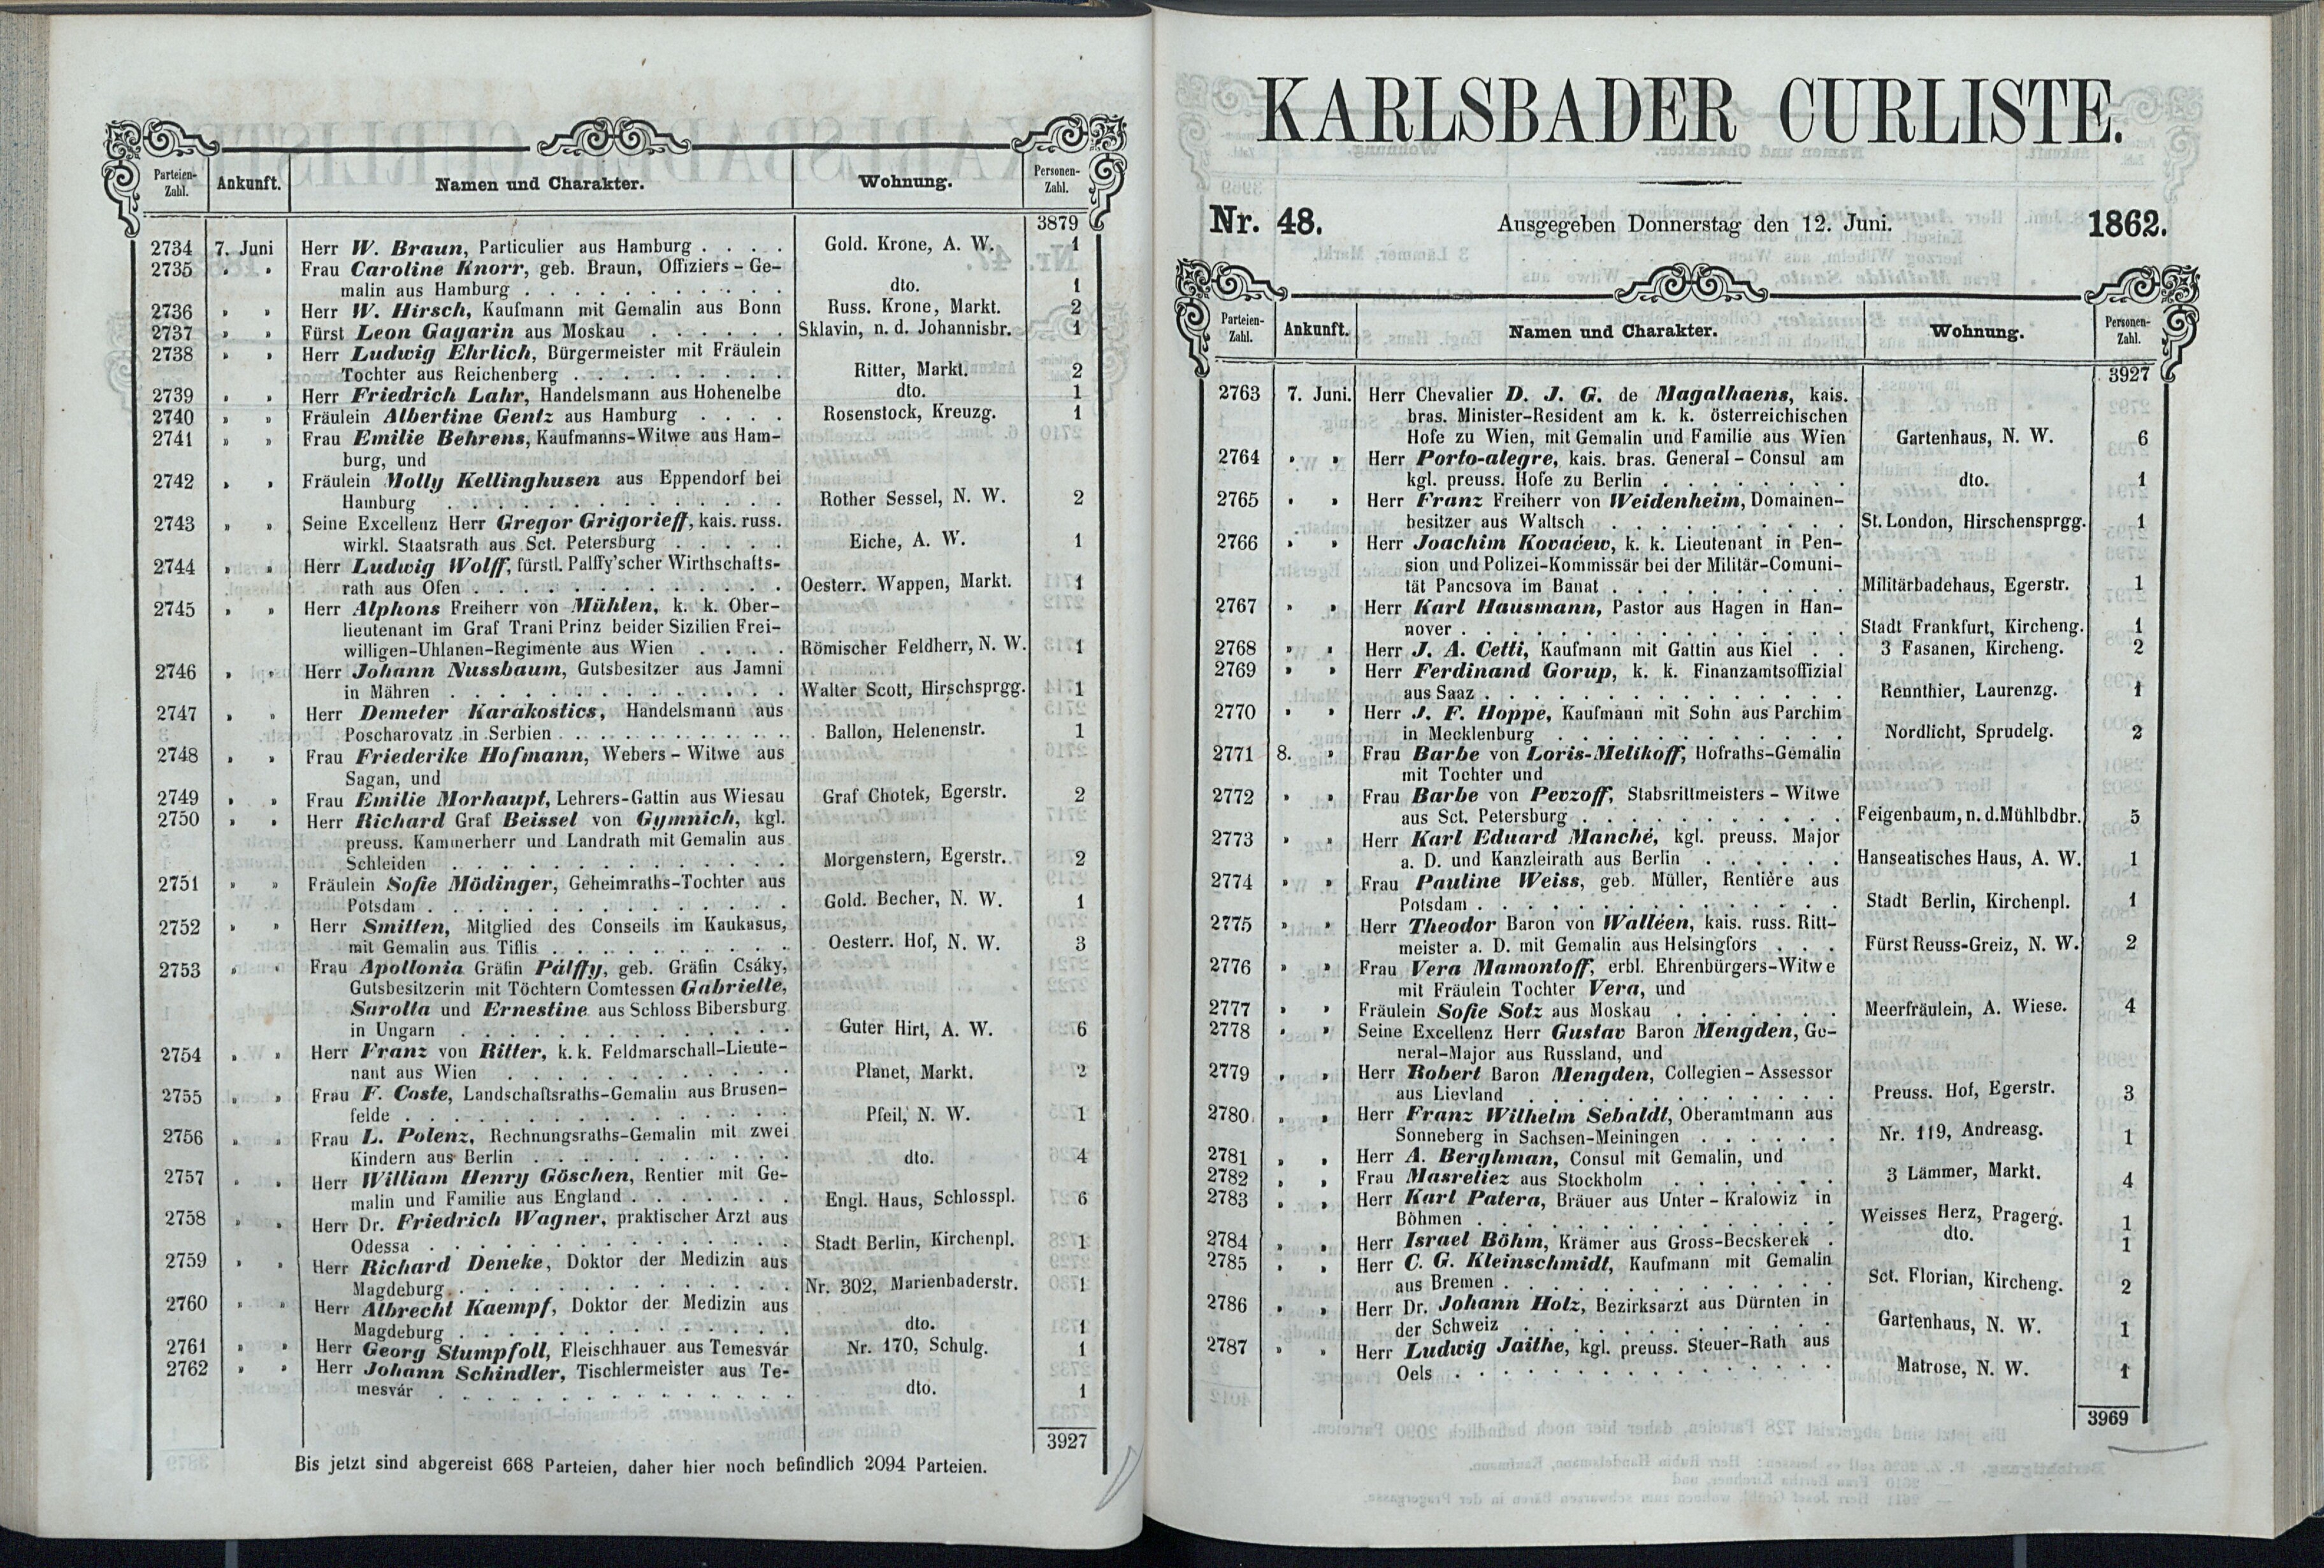 Parteien-Zahl. Ankunft. Namen und Charakter. Wohnung. Personen-Zahl.
3879
2734 7. Juni Herr W. Braun, Particulier aus Hamburg . . . . Gold. Krone, A. W. 1
2735 " " Frau Caroline Knorr, geb. Braun, Offiziers-Ge-
malin aus Hamburg . . . . . . . . . . . dto. 1
2736 " " Herr W. Hirsch, Kaufmann mit Gemalin aus Bonn Russ. Krone, Markt. 2
2737 " " Fürst Leon Gagarin aus Moskau . . . . . . Sklavin, n. d. Johannisbr. 1
2738 " " Herr Ludwig Ehrlich, Bürgermeister mit Fräulein
Tochter aus Reichenberg . . . . . . . . . Ritter, Markt. 2
2739 " " Herr Friedrich Lahr, Handelsmann aus Hohenelbe dto. 1
2740 " " Fräulein Albertine Gentz aus Hamburg . . . . Rosenstock, Kreuzg. 1
2741 " " Frau Emilie Behrens, Kaufmanns-Witwe aus Ham-
burg, und
2742 " " Fräulein Molly Kellinghusen aus Eppendorf bei
Hamburg . . . . . . . . . . . . . . Rother Sessel, N. W. 2
2743 " " Seine Excellenz Herr Gregor Grigorieff, kais. russ.
wirkl. Staatsrath aus Sct. Petersburg . . . . . Eiche, A. W. 1
2744 " " Herr Ludwig Wolff, fürstl. Palffy'scher Wirthschafts-
rath aus Ofen . . . . . . . . . . . . . Oesterr. Wappen, Markt. 1
2745 " " Herr Alphons Freiherr von Mühlen, k. k. Ober-
lieutenant im Graf Trani Prinz beider Sizilien Frei-
willigen-Uhlanen-Regimente aus Wien . . . . Römischer Feldherr, N. W. 1
2746 " " Herr Johann Nussbaum, Gutsbesitzer aus Jamni
in Mähren . . . . . . . . . . . . . . Walter Scott, Hirschsprgg. 1
2747 " " Herr Demeter Karakostics, Handelsmann aus
Poscharovatz in Serbien . . . . . . . . . . Ballon, Helenenstr. 1
2748 " " Frau Friederike Hofmann, Webers-Witwe aus
Sagan, und
2749 " " Frau Emilie Morhaupt, Lehrers-Gattin aus Wiesau Graf Chotek, Egerstr. 2
2750 " " Herr Richard Graf Beissel von Gymnich, kgl.
preuss. Kammerherr und Landrath mit Gemalin aus
Schleiden . . . . . . . . . . . . . . Morgenstern, Egerstr. 2
2751 " " Fräulein Sofie Mödinger, Geheimraths-Tochter aus
Potsdam . . . . . . . . . . . . . . . Gold. Becher, N. W. 1
2752 " " Herr Smitten, Mitglied des Conseils im Kaukasus,
mit Gemalin aus Tiflis . . . . . . . . . . Oesterr. Hof, N. W. 3
2753 " " Frau Apollonia Gräfin Pálffy, geb. Gräfin Csáky,
Gutsbesitzerin mit Töchtern Comtessen Gabrielle,
Sarolta und Ernestine aus Schloss Bibersburg
in Ungarn . . . . . . . . . . . . . . Guter Hirt, A. W. 6
2754 " " Herr Franz von Ritter, k. k. Feldmarschall-Lieute-
nant aus Wien . . . . . . . . . . . . Planet, Markt. 2
2755 " " Frau F. Coste, Landschaftsraths-Gemalin aus Brusen-
felde . . . . . . . . . . . . . . . . Pfeil, N. W. 1
2756 " " Frau L. Polenz, Rechnungsraths-Gemalin mit zwei
Kindern aus Berlin . . . . . . . . . . . dto. 4
2757 " " Herr William Henry Göschen, Rentier mit Ge-
malin und Familie aus England . . . . . . . Engl. Haus, Schlosspl. 6
2758 " " Herr Dr. Friedrich Wagner, praktischer Arzt aus
Odessa . . . . . . . . . . . . . . . Stadt Berlin, Kirchenpl. 1
2759 " " Herr Richard Deneke, Doktor der Medizin aus
Magdeburg . . . . . . . . . . . . . . Nr. 302, Marienbaderstr. 1
2760 " " Herr Albrecht Kaempf, Doktor der Medizin aus
Magdeburg . . . . . . . . . . . . . . dto. 1
2761 " " Herr Georg Stumpfoll, Fleischhauer aus Temesvár Nr. 170, Schulg. 1
2762 " " Herr Johann Schindler, Tischlermeister aus Te-
mesvár . . . . . . . . . . . . . . . dto. 1
3927
Bis jetzt sind abgereist 668 Parteien, daher hier noch befindlich 2094 Parteien.
KARLSBADER CURLISTE.
Nr. 48. Ausgegeben Donnerstag den 12. Juni. 1862.
Parteien-Zahl. Ankunft. Namen und Charakter. Wohnung. Personen-Zahl.
3927
2763 7. Juni. Herr Chevalier D. J. G. de Magalhaens, kais.
bras. Minister-Resident am k. k. österreichischen
Hofe zu Wien, mit Gemalin und Familie aus Wien Gartenhaus, N. W. 6
2764 " " Herr Porto-alegre, kais. bras. General-Consul am
kgl. preuss. Hofe zu Berlin . . . . . . . . . dto. 1
2765 " " Herr Franz Freiherr von Weidenheim, Domainen-
besitzer aus Waltsch . . . . . . . . . . . St. London, Hirschensprgg. 1
2766 " " Herr Joachim Kovaćew, k. k. Lieutenant in Pen-
sion und Polizei-Kommissär bei der Militär-Comuni-
tät Pancsova im Banat . . . . . . . . . . Militärbadehaus, Egerstr. 1
2767 " " Herr Karl Hausmann, Pastor aus Hagen in Han-
nover . . . . . . . . . . . . . . . . Stadt Frankfurt, Kircheng. 1
2768 " " Herr J. A. Cetti, Kaufmann mit Gattin aus Kiel . . 3 Fasanen, Kircheng. 2
2769 " " Herr Ferdinand Gorup, k. k. Finanzamtsoffizial
aus Saaz . . . . . . . . . . . . . . . Rennthier, Laurenzg. 1
2770 " " Herr J. F. Hoppe, Kaufmann mit Sohn aus Parchim
in Mecklenburg . . . . . . . . . . . . Nordlicht, Sprudelg. 2
2771 8. " Frau Barbe von Loris-Melikoff, Hofraths-Gemalin
mit Tochter und
2772 " " Frau Barbe von Pevzoff, Stabsrittmeisters-Witwe
aus Sct. Petersburg . . . . . . . . . . . Feigenbaum, n. d. Mühlbdbr. 5
2773 " " Herr Karl Eduard Manché, kgl. preuss. Major
a. D. und Kanzleirath aus Berlin . . . . . . Hanseatisches Haus, A. W. 1
2774 " " Frau Pauline Weiss, geb. Müller, Rentière aus
Potsdam . . . . . . . . . . . . . . . Stadt Berlin, Kirchenpl. 1
2775 " " Herr Theodor Baron von Walléen, kais. russ. Ritt-
meister a. D. mit Gemalin aus Helsingfors . . . Fürst Reuss-Greiz, N. W. 2
2776 " " Frau Vera Mamontoff, erbl. Ehrenbürgers-Witwe
mit Fräulein Tochter Vera, und
2777 " " Fräulein Sofie Sotz aus Moskau . . . . . . . Meerfräulein, A. Wiese. 4
2778 " " Seine Excellenz Herr Gustav Baron Mengden, Ge-
neral-Major aus Russland, und
2779 " " Herr Robert Baron Mengden, Collegien-Assessor
aus Lievland . . . . . . . . . . . . . Preuss. Hof, Egerstr. 3
2780 " " Herr Franz Wilhelm Sebaldt, Oberamtmann aus
Sonneberg in Sachsen-Meiningen . . . . . . Nr. 119, Andreasg. 1
2781 " " Herr A. Berghman, Consul mit Gemalin, und
2782 " " Frau Masreliez aus Stockholm . . . . . . . 3 Lämmer, Markt. 4
2783 " " Herr Karl Patera, Bräuer aus Unter-Kralowiz in
Böhmen . . . . . . . . . . . . . . . Weisses Herz, Pragerg. 1
2784 " " Herr Israel Böhm, Krämer aus Gross-Becskerek . dto. 1
2785 " " Herr C. G. Kleinschmidt, Kaufmann mit Gemalin
aus Bremen . . . . . . . . . . . . . . Sct. Florian, Kircheng. 2
2786 " " Herr Dr. Johann Holz, Bezirksarzt aus Dürnten in
der Schweiz . . . . . . . . . . . . . Gartenhaus, N. W. 1
2787 " " Herr Ludwig Jaithe, kgl. preuss. Steuer-Rath aus
Oels . . . . . . . . . . . . . . . . Matrose, N. W. 1
3969